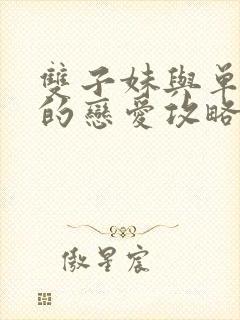 雙子妹與單
的戀愛攻略
傲星宸